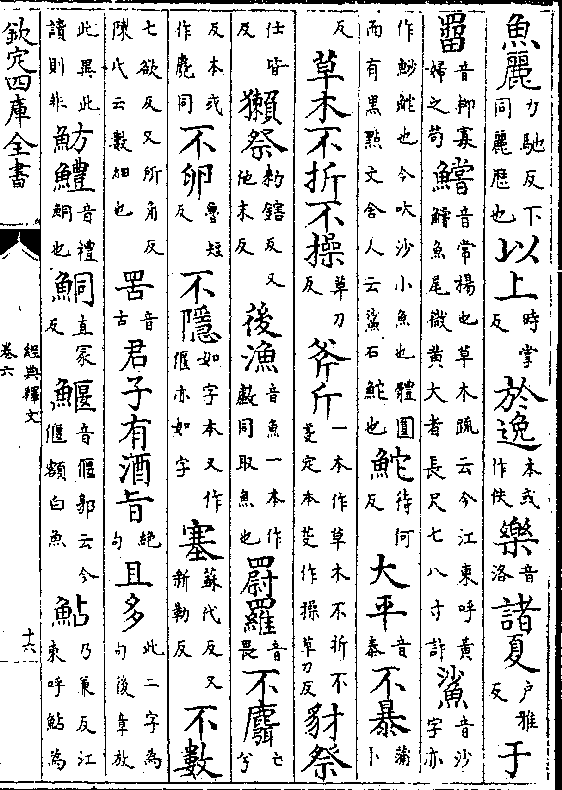 魚麗力馳反下同麗歷也以上時掌反於逸本或作佚樂音洛諸夏户雅反于
罶音柳寡婦之笱鱨音常楊也草木疏云今江東呼黄鱨魚尾微黄大者長尺七八寸許鯊音沙字亦
作魦鮀也今吹沙小魚也體圓而有黒點文舍人云鯊石鮀也鮀待何反大平音泰不暴蒲卜
反草木不折不操草刀反斧斤一本作草木不折不芟定本芟作操草刀反豺祭
仕皆反獺祭勑鎋反又他末反後漁音魚一本作䱷同取魚也罻羅音畏不麛亡兮
反本或作麑同不卵魯短反不隱如字本又作偃亦如字塞蘇代反又新勒反不數
七欲反又所角反陳氏云數細也罟音古君子有酒旨絶句且多此二字為句後章放
此異此讀則非魴鱧音禮鮦也鮦直冢反鰋音偃郭云今偃額白魚鮎乃兼反江東呼鮎為
欽定四庫全書
經典釋文
卷六
十六